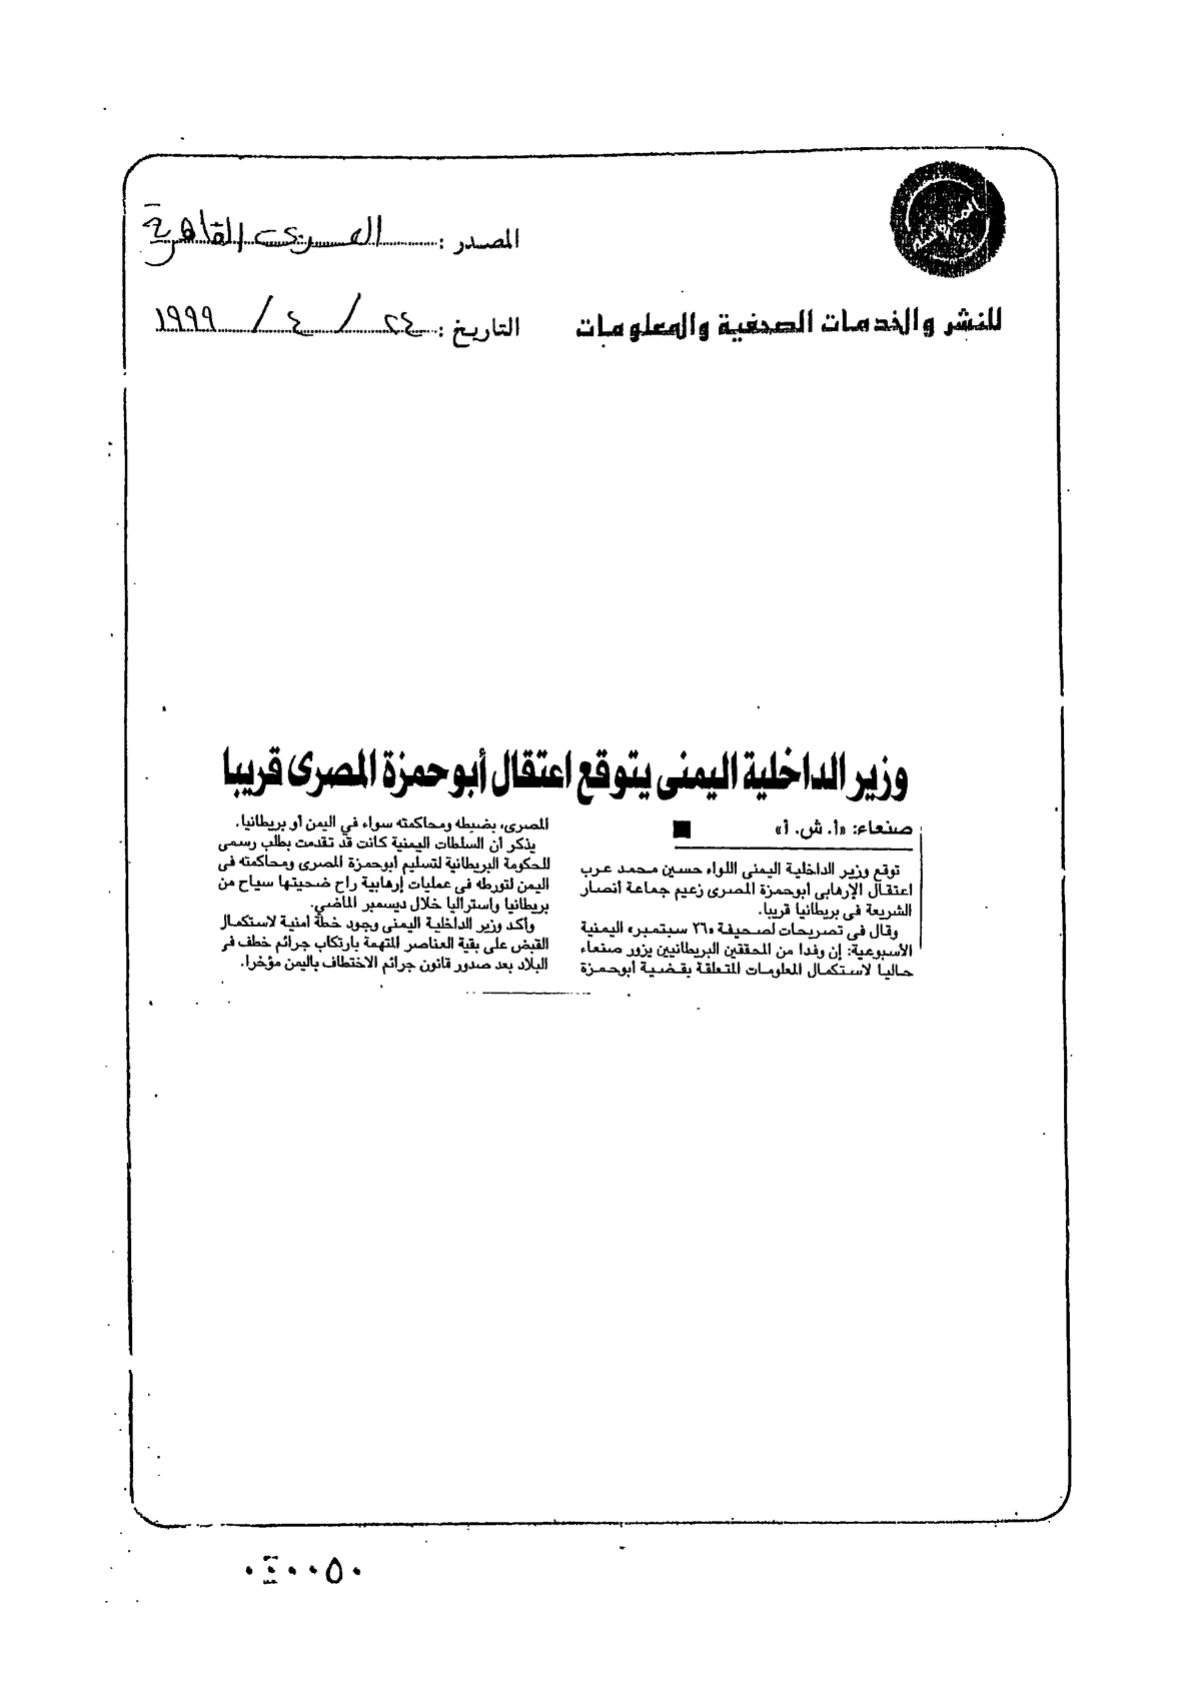 المصدر : العربى القاهرية
للنشر والخدمات الصحفية والمعلومات
التاريخ : ٢٤ / ٤ / ١٩٩٩
وزير الداخلية اليمنى يتوقع اعتقال أبو حمزة المصرى قريبا
صنعاء: «أ. ش. أ»
توقع وزير الداخلية اليمنى اللواء حسين محمد عرب
اعتقال الإرهابى ابوحمزة المصرى زعيم جماعة انصار
الشريعة فى بريطانيا قريبا.
وقال فى تصريحات لصحيفة «٢٦ سبتمبر» اليمنية
الأسبوعية: إن وفدا من المحققين البريطانيين يزور صنعاء
حاليا لاستكمال المعلومات المتعلقة بقضية ابوحمزة
المصرى، بضبطه ومحاكمته سواء في اليمن أو بريطانيا.
يذكر أن السلطات اليمنية كانت قد تقدمت بطلب رسمى
للحكومة البريطانية لتسليم أبوحمزة المصرى ومحاكمته فى
اليمن لتورطه فى عمليات إرهابية راح ضحيتها سياح من
بريطانيا واستراليا خلال ديسمبر الماضي.
وأكد وزير الداخلية اليمنى وجود خطة أمنية لاستكمال
القبض على بقية العناصر المتهمة بارتكاب جرائم خطف فى
البلاد بعد صدور قانون جرائم الاختطاف باليمن مؤخرا.